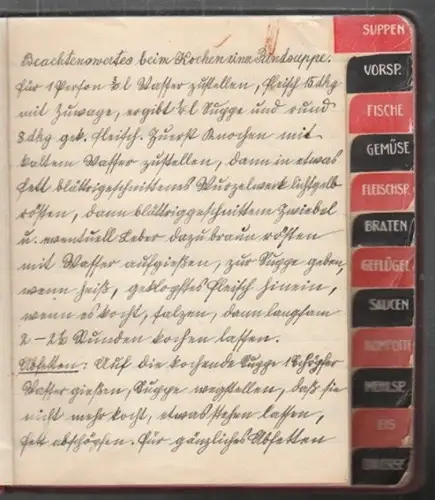 Beachtenswertes beim Kochen eine Rindsuppe.
Für 1 Person ½ l Wasser zustellen, Fleisch 15 dkg
mit Zuwage, ergibt l Suppe und rund
8 dkg gek. Fleisch. Zuerst Knochen mit
kaltem Wasser zustellen, dann in etwas
Fett blättriggeschnittenes Wurzelwerk lichtgelb
rösten, dann blättriggeschnittene Zwiebel
u. eventuell Leber dazu braun rösten
mit Wasser aufgießen, zur Suppe geben,
wenn heiß, geklopftes Fleisch hinein,
wenn es kocht, salzen, dann langsam
2 - 2½ Stunden kochen lassen.
Abfetten: Auf die kochende Suppe 1 Schöpfer
Wasser gießen, Suppe wegstellen, daß sie
nicht mehr kocht, etwas stehen lassen,
Fett abschöpfen. Für gänzliches Abfetten
SUPPEN
VORSP.
FISCHE
GEMÜSE
FLEISCHSP.
BRATEN
GEFLÜGEL
SAUCEN
KOMPOTTE
MEHLSP.
EIS